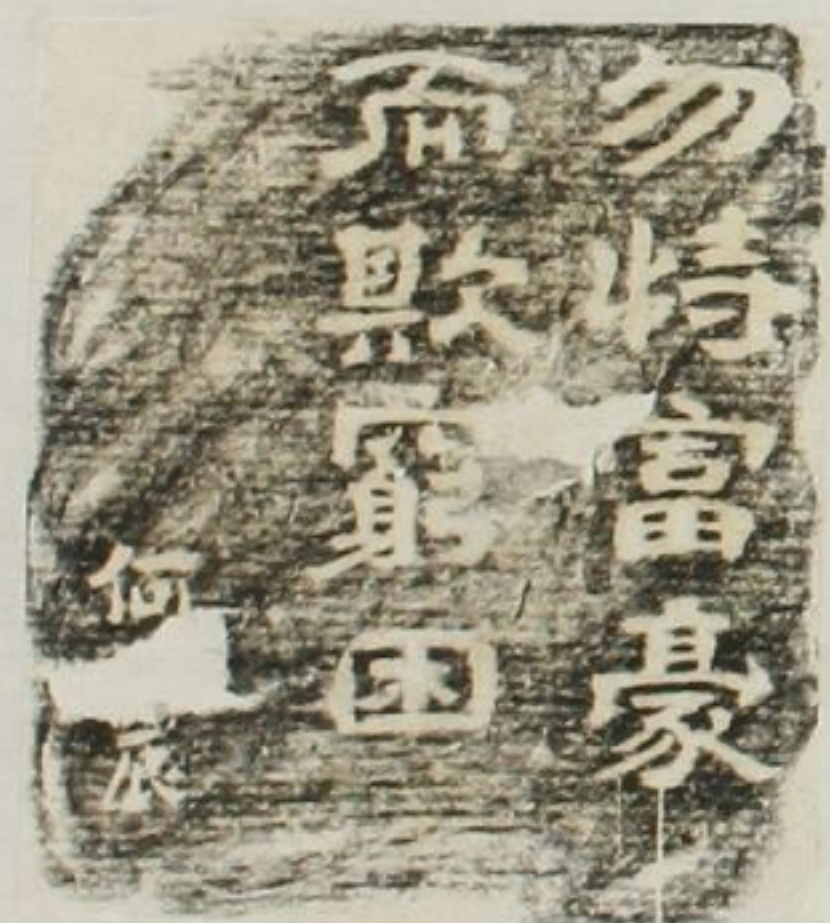 勿恃富豪
而欺窮困
何 辰